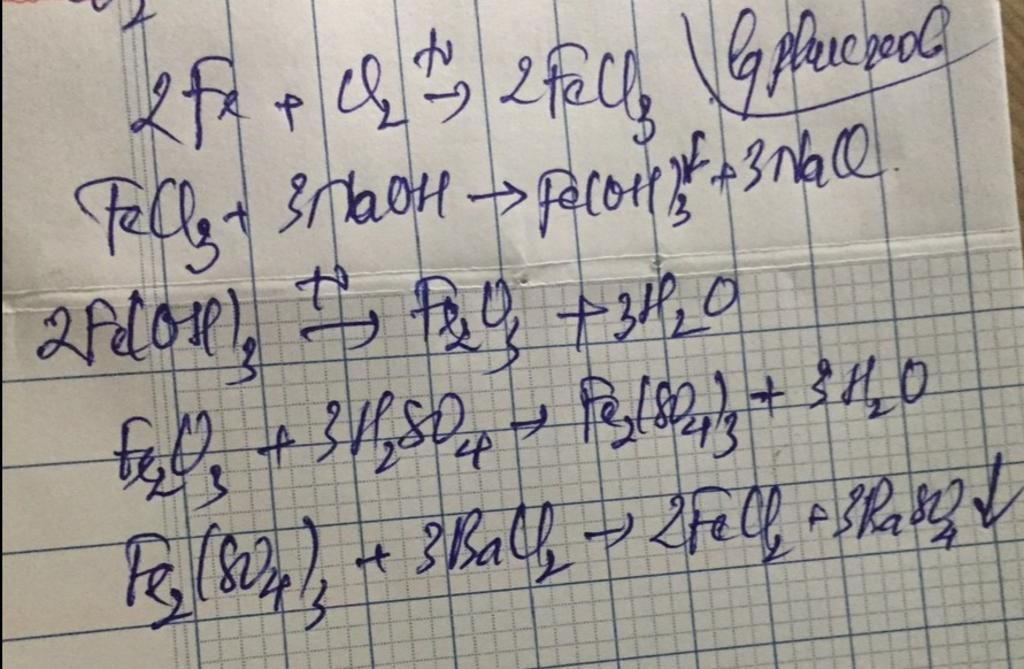 2
2Fe + Cl₂ →ᵗ 2FeCl₃
FeCl₃ + 3NaOH → Fe(OH)₃↓ + 3NaCl.
2Fe(OH)₃ →ᵗ Fe₂O₃ + 3H₂O
Fe₂O₃ + 3H₂SO₄ → Fe₂(SO₄)₃ + 3H₂O
Fe₂(SO₄)₃ + 3BaCl₂ → 2FeCl₂ + 3BaSO₄↓